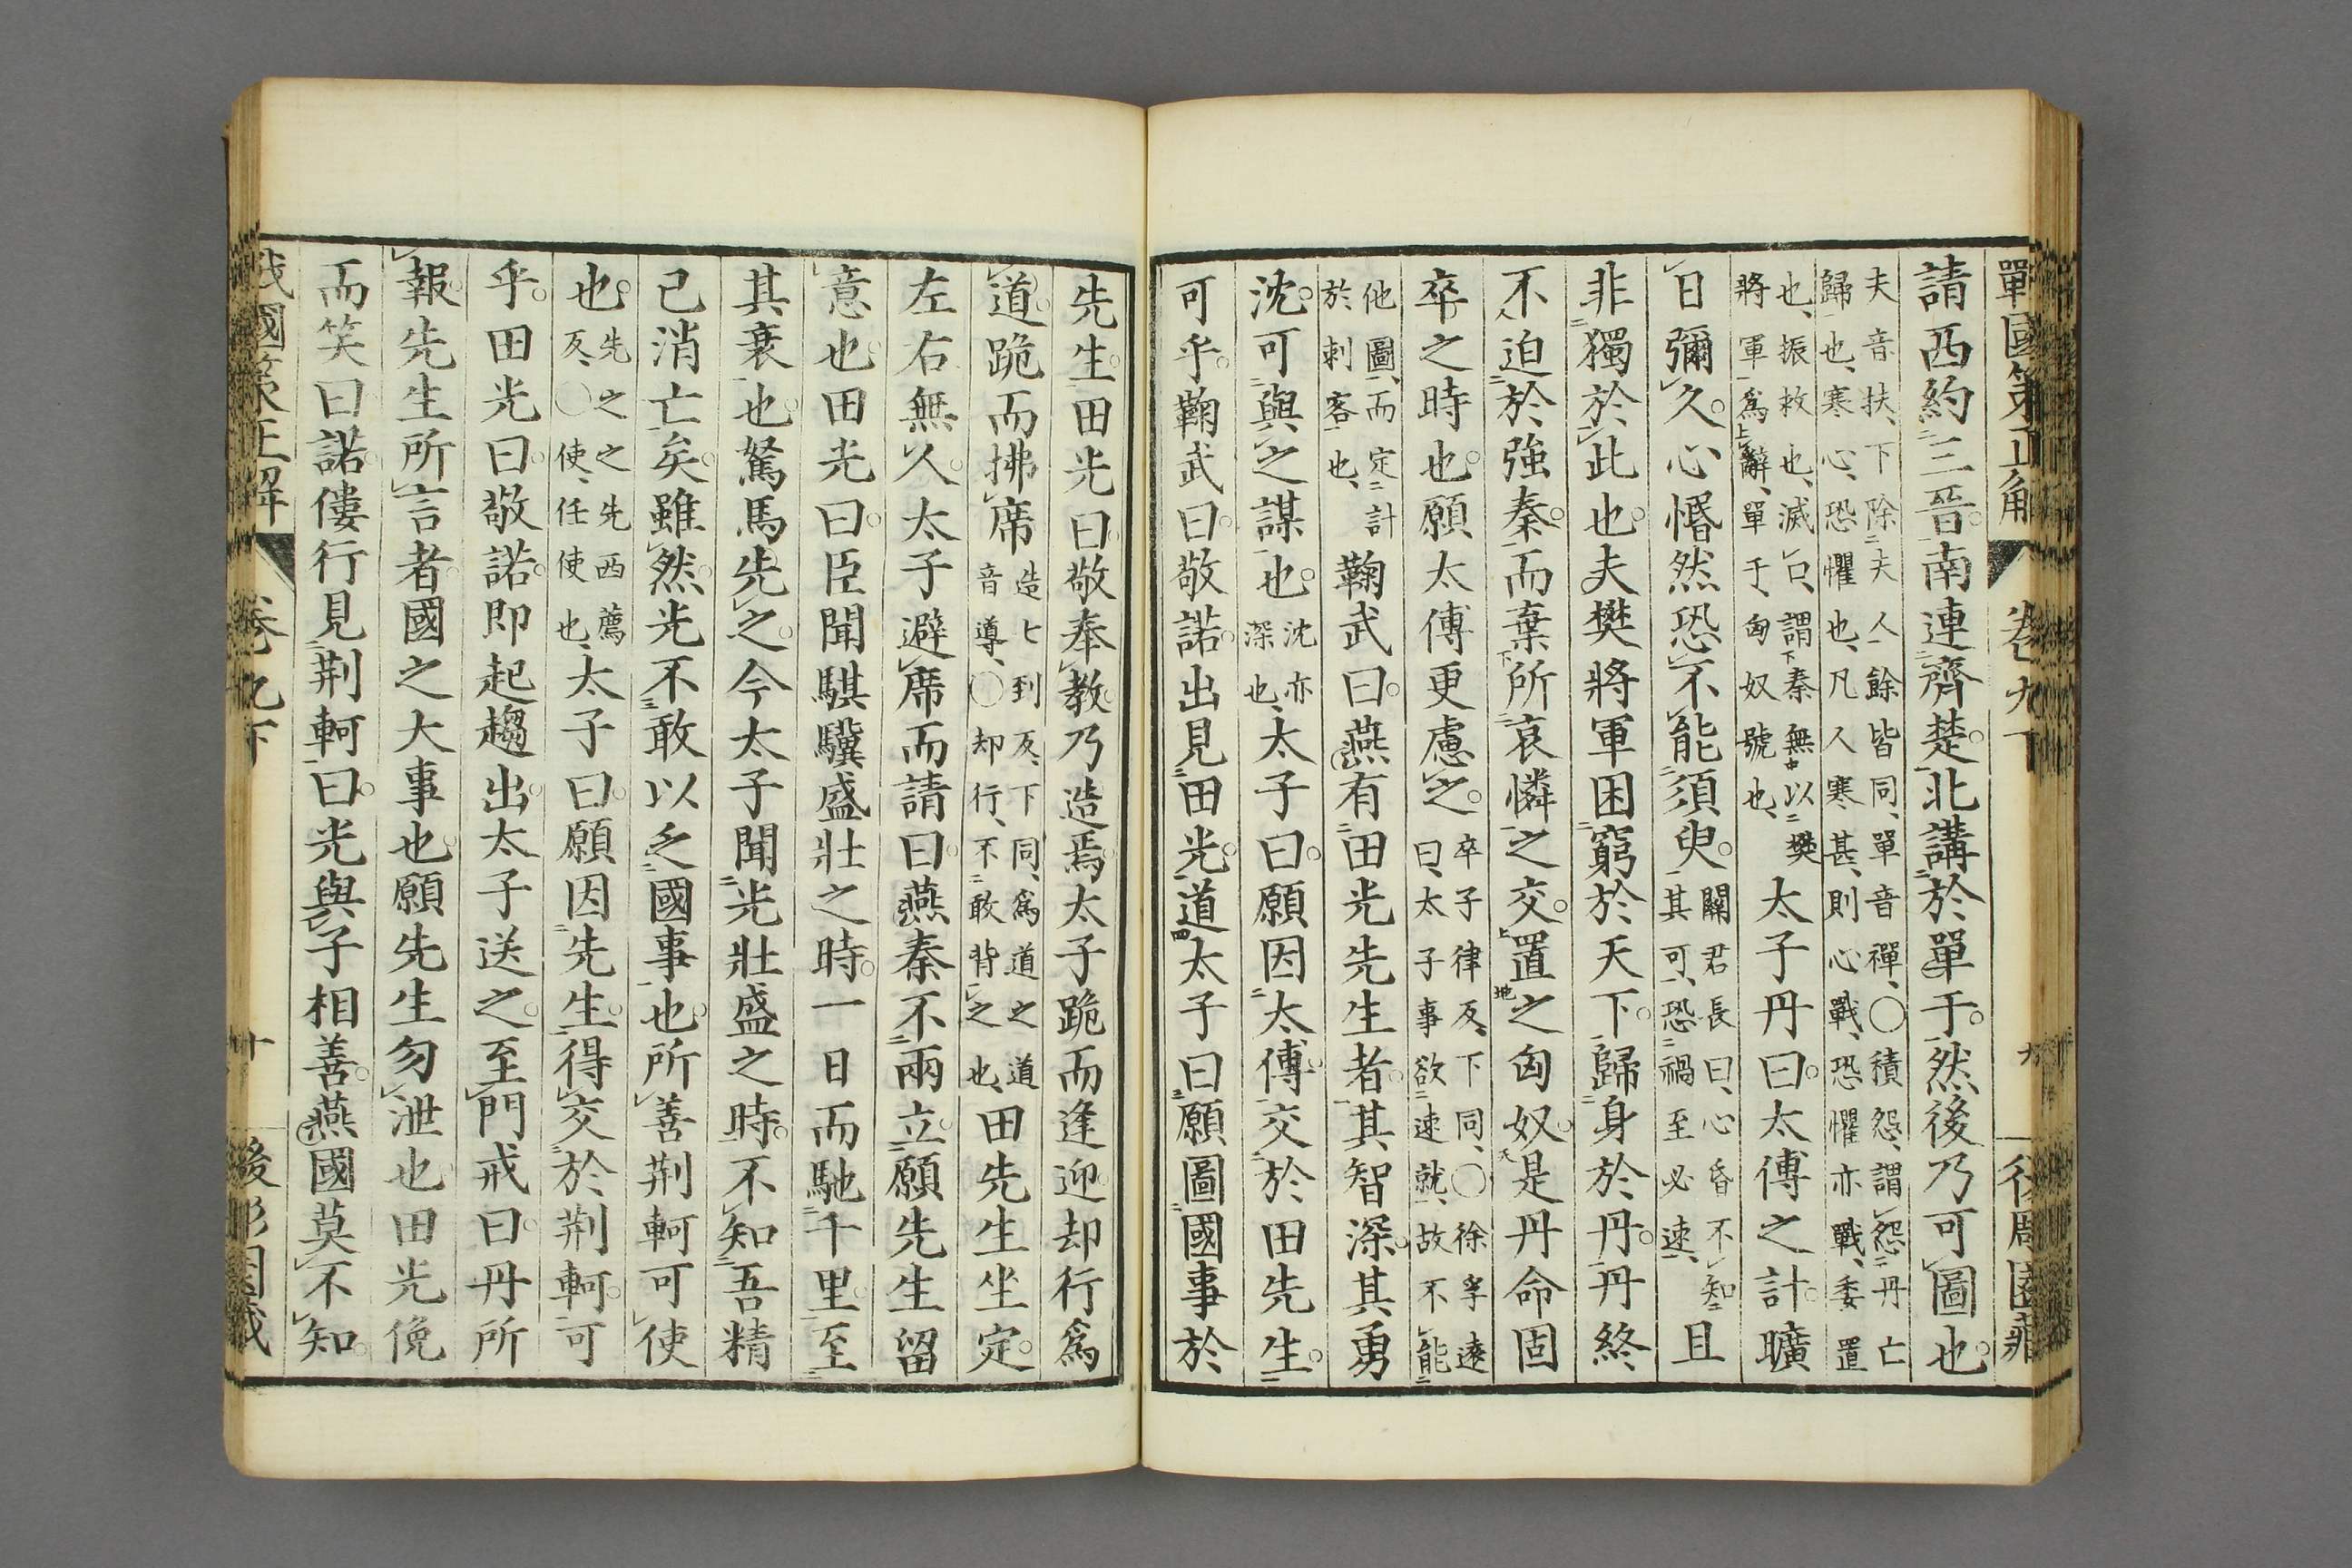 戰國策正解 卷九下 九
請西約三晉南連齊楚北講於單于然後乃可圖也
夫音扶、下除夫人餘皆同、單音禪、○積怨、謂怨丹亡
歸也、寒心、恐懼也、凡人寒甚、則心戰、恐懼亦戰、委置
也、振救也、滅口、謂秦無以樊
將軍爲辭、單于、匈奴號也、
太子丹曰太傅之計曠
日彌久心惛然恐不能須臾
關君長曰、心昏不知
其可、恐禍至必速、
且
非獨於此也夫樊將軍困窮於天下歸身於丹丹終
不迫於強秦而棄所哀憐之交置之匈奴是丹命固
卒之時也願太傅更慮之
卒子律反、下同、○徐孚遠
曰、太子事欲速就、故不能
他圖、而定計
於刺客也、
鞠武曰燕有田光先生者其智深其勇
沈可與之謀也
沈亦
深也、
太子曰願因太傅交於田先生
可乎鞠武曰敬諾出見田光道太子曰願圖國事於
先生田光曰敬奉教乃造焉太子跪而逢迎却行爲
道跪而拂席
造七到反、下同、爲道之道
音導、○却行、不敢背之也、
田先生坐定
左右無人太子避席而請曰燕秦不兩立願先生留
意也田光曰臣聞騏驥盛壯之時一日而馳千里至
其衰也駑馬先之今太子聞光壯盛之時不知吾精
已消亡矣雖然光不敢以乏國事也所善荆軻可使
也
先之之先西薦
反、○使、任使也、
太子曰願因先生得交於荆軻可
乎田光曰敬諾即起趨出太子送之至門戒曰丹所
報先生所言者國之大事也願先生勿泄也田光俛
而笑曰諾僂行見荆軻曰光與子相善燕國莫不知
戰國策正解 卷九下 十